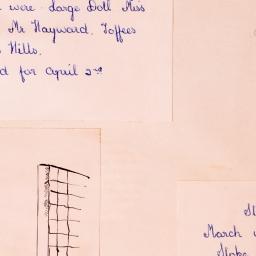 were Large Doll Miss
Mr Hayward. Toffees
Hills.
d for April 2nd
March